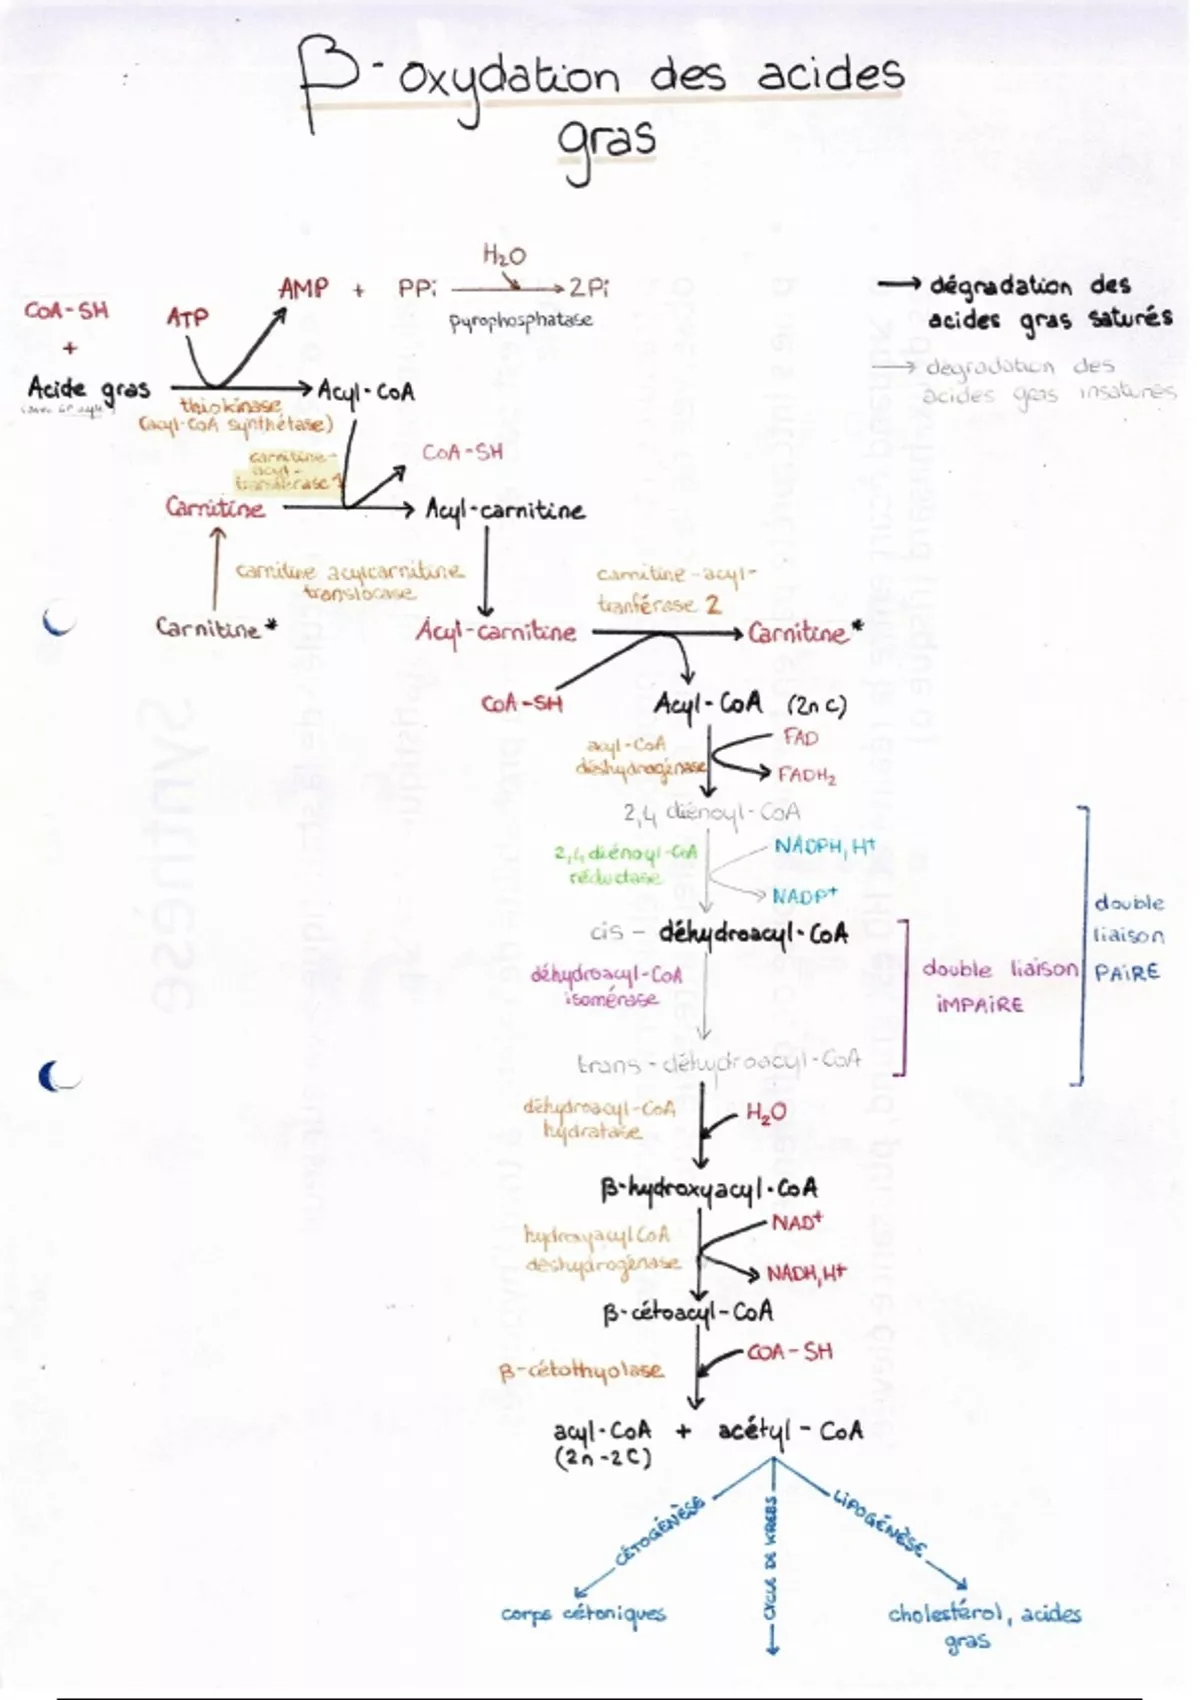 β-oxydation des acides
gras
H₂O
AMP + PPi → 2Pi
pyrophosphatase
CoA-SH
+
ATP
Acide gras → Acyl-CoA
thiokinase
(acyl-CoA synthétase)
→ dégradation des
acides gras saturés
→ dégradation des
acides gras insaturés
carnitine-
acyl-
transférase 1
CoA-SH
Carnitine → Acyl-carnitine
carnitine acylcarnitine
translocase
carnitine-acyl-
tranférase 2
Carnitine*
Acyl-carnitine → Carnitine*
CoA-SH
Acyl-CoA (2n c)
acyl-CoA
déshydrogénase
FAD
FADH₂
2,4 diénoyl-CoA
2,4 diénoyl-CoA
réductase
NADPH, H+
NADP+
cis - déhydroacyl-CoA
déhydroacyl-CoA
isomérase
double liaison
iMPAiRE
double
liaison
PAiRE
trans-déhydroacyl-CoA
déhydroacyl-CoA
hydratase
H₂O
β-hydroxyacyl-CoA
hydroxyacyl CoA
déshydrogénase
NAD+
NADH, H+
β-cétoacyl-CoA
β-cétothyolase
COA-SH
acyl-CoA + acétyl-CoA
(2n-2C)
CÉTOGÉNÈSE
CYCLE DE KREBS
LIPOGÉNÈSE
corps cétoniques
cholestérol, acides
gras